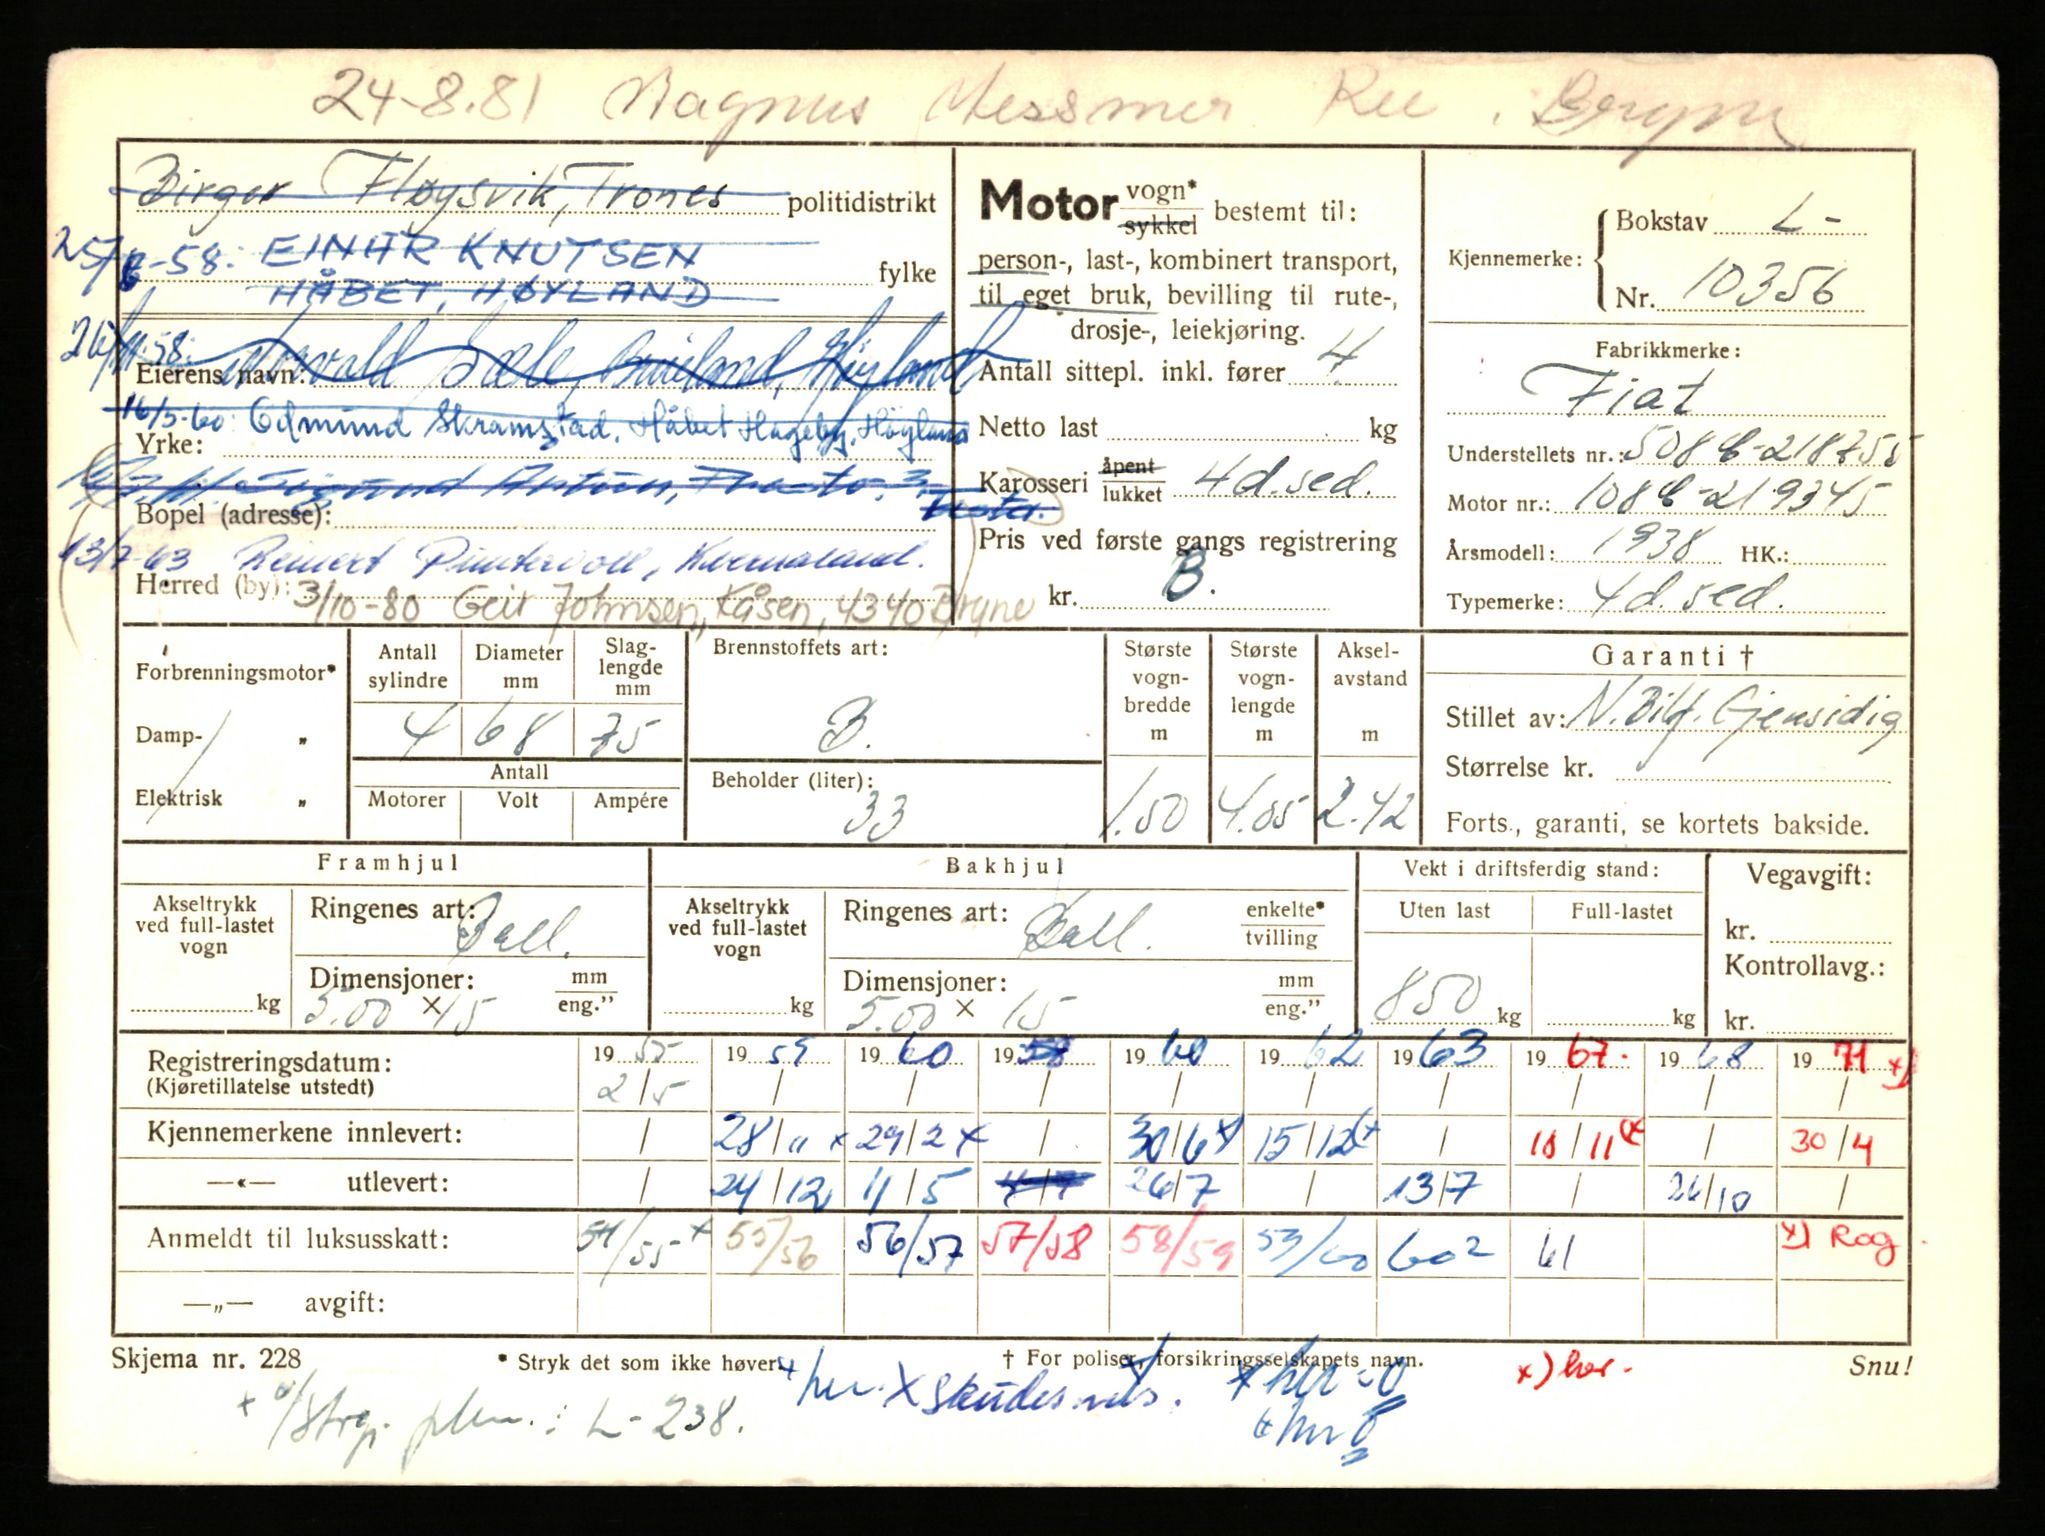 24-8.81 Magnus Messmer Ree . Bryne
Birger Fløysvik, Trones politidistrikt
25/6-58: EINAR KNUTSEN fylke
HÅBET, HØYLAND
26/11-58:
Eierens navn:
16/5-60: Edmund Skramstad, Håbet Hageby, Høyland
Yrke:
Bopel (adresse):
13/7-63 Reinert Kvernaland.
Herred (by): 3/10-80 Geir Johnsen, Kåsen, 4340 Bryne
Motor vogn* sykkel bestemt til:
person-, last-, kombinert transport,
til eget bruk, bevilling til rute-,
drosje-, leiekjøring.
Antall sittepl. inkl. fører 4
Netto last kg
Karosseri åpent lukket 4d. sed.
Pris ved første gangs registrering
kr. B.
Kjennemerke: Bokstav L-
Nr. 10356
Fabrikkmerke:
Fiat
Understellets nr.: 508C-218755
Motor nr.: 108C-219345
Årsmodell: 1938 HK.:
Typemerke: 4d. sed.
Forbrenningsmotor*
Damp- „
Elektrisk „
Antall sylindre Diameter mm Slag-lengde mm
4 68 75
Antall
Motorer Volt Ampére
Brennstoffets art:
B.
Beholder (liter):
33
Største vogn-bredde m Største vogn-lengde m Aksel-avstand m
1.50 4.05 2.42
Garanti †
Stillet av: N. Bilf. Gjensidig
Størrelse kr.
Forts., garanti, se kortets bakside.
Framhjul
Akseltrykk ved full-lastet vogn
kg
Ringenes art: Ball.
Dimensjoner: mm eng."
5.00 x 15
Bakhjul
Akseltrykk ved full-lastet vogn
kg
Ringenes art: Ball. enkelte* tvilling
Dimensjoner: mm eng."
5.00 x 15
Vekt i driftsferdig stand:
Uten last Full-lastet
850 kg kg
Vegavgift:
kr.
Kontrollavg.:
kr.
Registreringsdatum: 1955 1959 1960 1958 1960 1962 1963 1967. 1968 1971 x)
(Kjøretillatelse utstedt) 2/5 / / / / / / / / /
Kjennemerkene innlevert: / 28/11 x 29/2 x / 30/6 x) 15/12 (x / 10/11 (x / 30/4
—«— utlevert: / 24/12 11/5 4/7 26/7 / 13/7 / 26/10 /
Anmeldt til luksusskatt: 54/55 x 55/56 56/57 57/58 58/59 59/60 60² 61 x) Rog.
—„— avgift:
Skjema nr. 228 * Stryk det som ikke høver † For poliser, forsikringsselskapets navn. Snu!
+ her. x Skudesnes. x her x) her.
L-238.